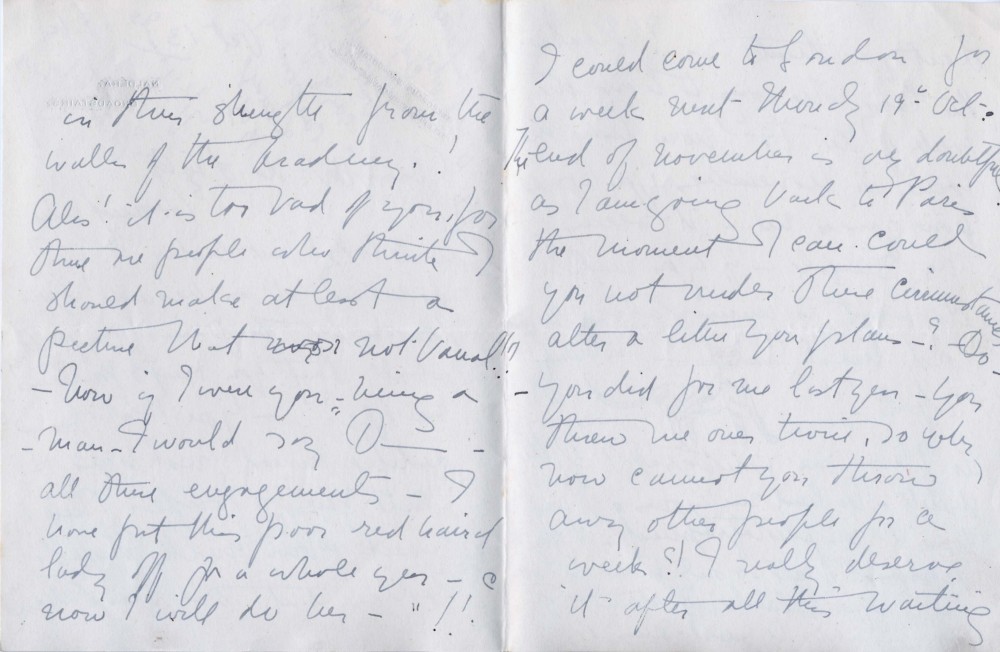 in their strength from the
walls of the Academy.!
Alas! it is too bad of you, for
there are people who think I
should make at least a
picture that not banal!!
– Now if I were you – being a
– man – I would say " D—— –
all these engagements – I
have put this poor red haired
lady off for a whole year – &
now I will do her – " !!
I could come to London for
a week next Monday 19th Oct:.
The end of November is very doubtful
as I am going back to Paris.
the moment I can. Could
you not under these circumstances
alter a little your plans – ? – So –
– you did for me last year – you
threw me over twice, so why
now cannot you throw
away other people for a
week?! I really deserve
it after all this waiting